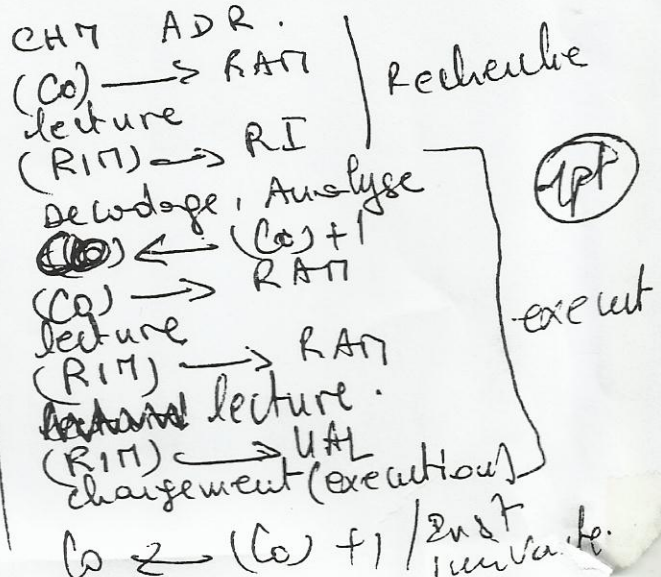 CHM ADR.
(Co) → RAM
lecture
(RIM) → RI
Recherche
Decodage, Analyse
1pt
← (Co) + 1
(Co) → RAM
lecture
(RIM) → RAM
execut
lecture.
(RIM) → UAL
chargement (execution)
Co ← (Co) + 1 / Inst
suivante.